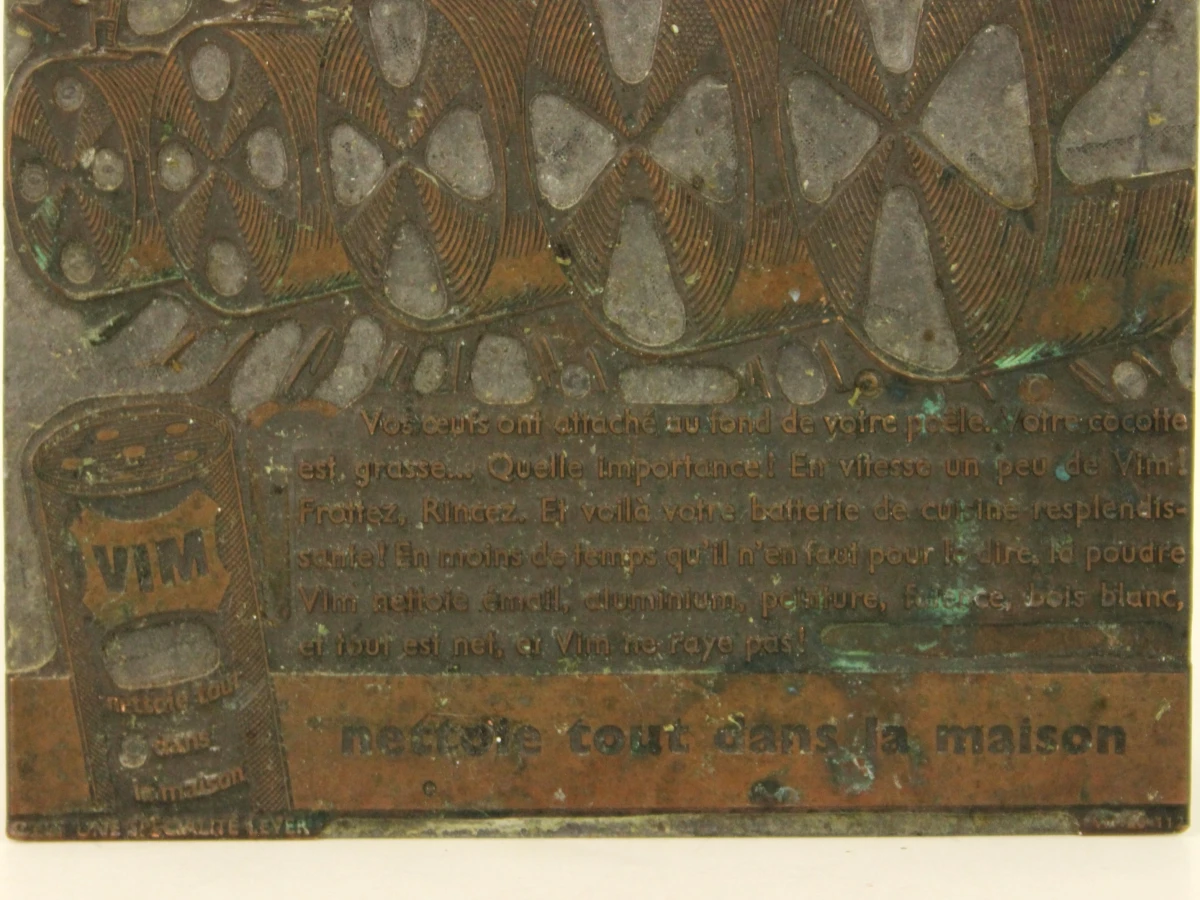 Vos œufs ont attaché au fond de votre poêle. Votre cocotte
est grasse... Quelle importance! En vitesse un peu de Vim!
Frottez, Rincez. Et voilà votre batterie de cuisine resplendis-
sante! En moins de temps qu'il n'en faut pour le dire, la poudre
Vim nettoie émail, aluminium, peinture, faïence, bois blanc,
et tout est net, et Vim ne raye pas!
VIM
nettoie tout
dans
la maison
nettoie tout dans la maison
UNE SPÉCIALITÉ LEVER